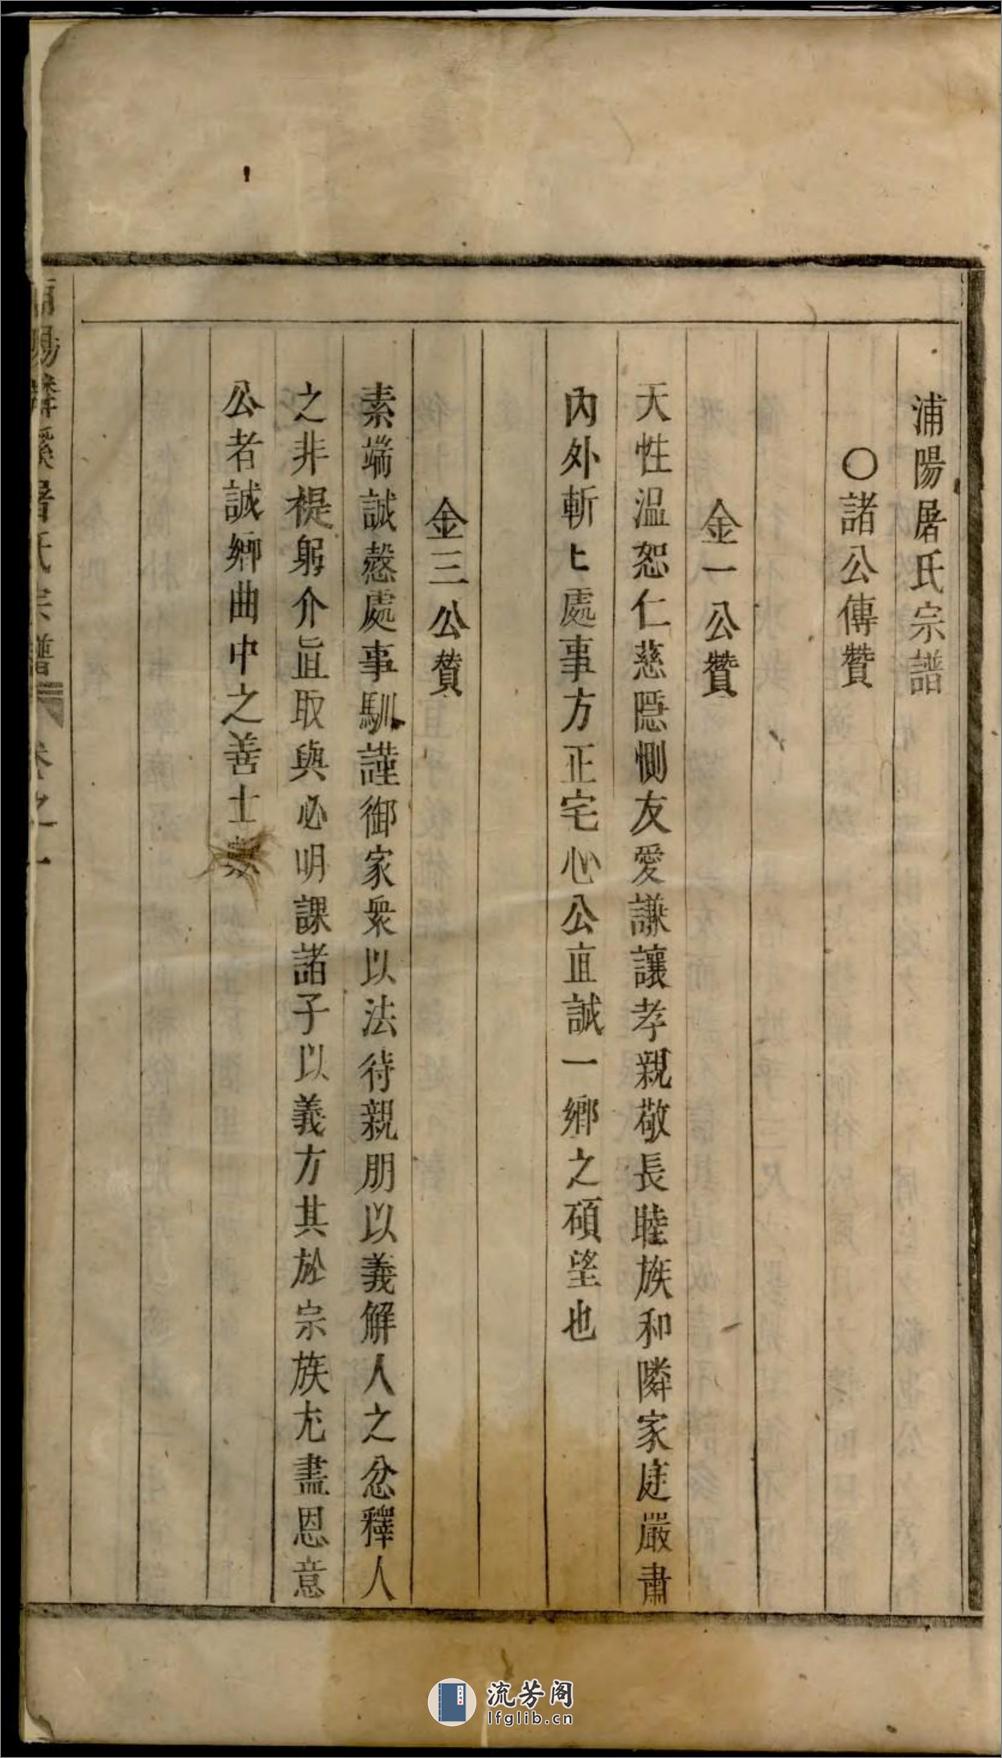 浦陽屠氏宗譜
○諸公傳贊
金一公贊
天性溫恕仁慈隱惻友愛謙讓孝親敬長睦族和隣家庭嚴肅
內外斬〻處事方正宅心公直誠一鄉之碩望也
金三公贊
素端誠慤處事馴謹御家衆以法待親朋以義解人之忿釋人
之非褆躬介直取與必明課諸子以義方其於宗族尤盡恩意
公者誠鄉曲中之善士
陽 溪屠氏宗譜 卷之一
流芳阁
lfglib.cn